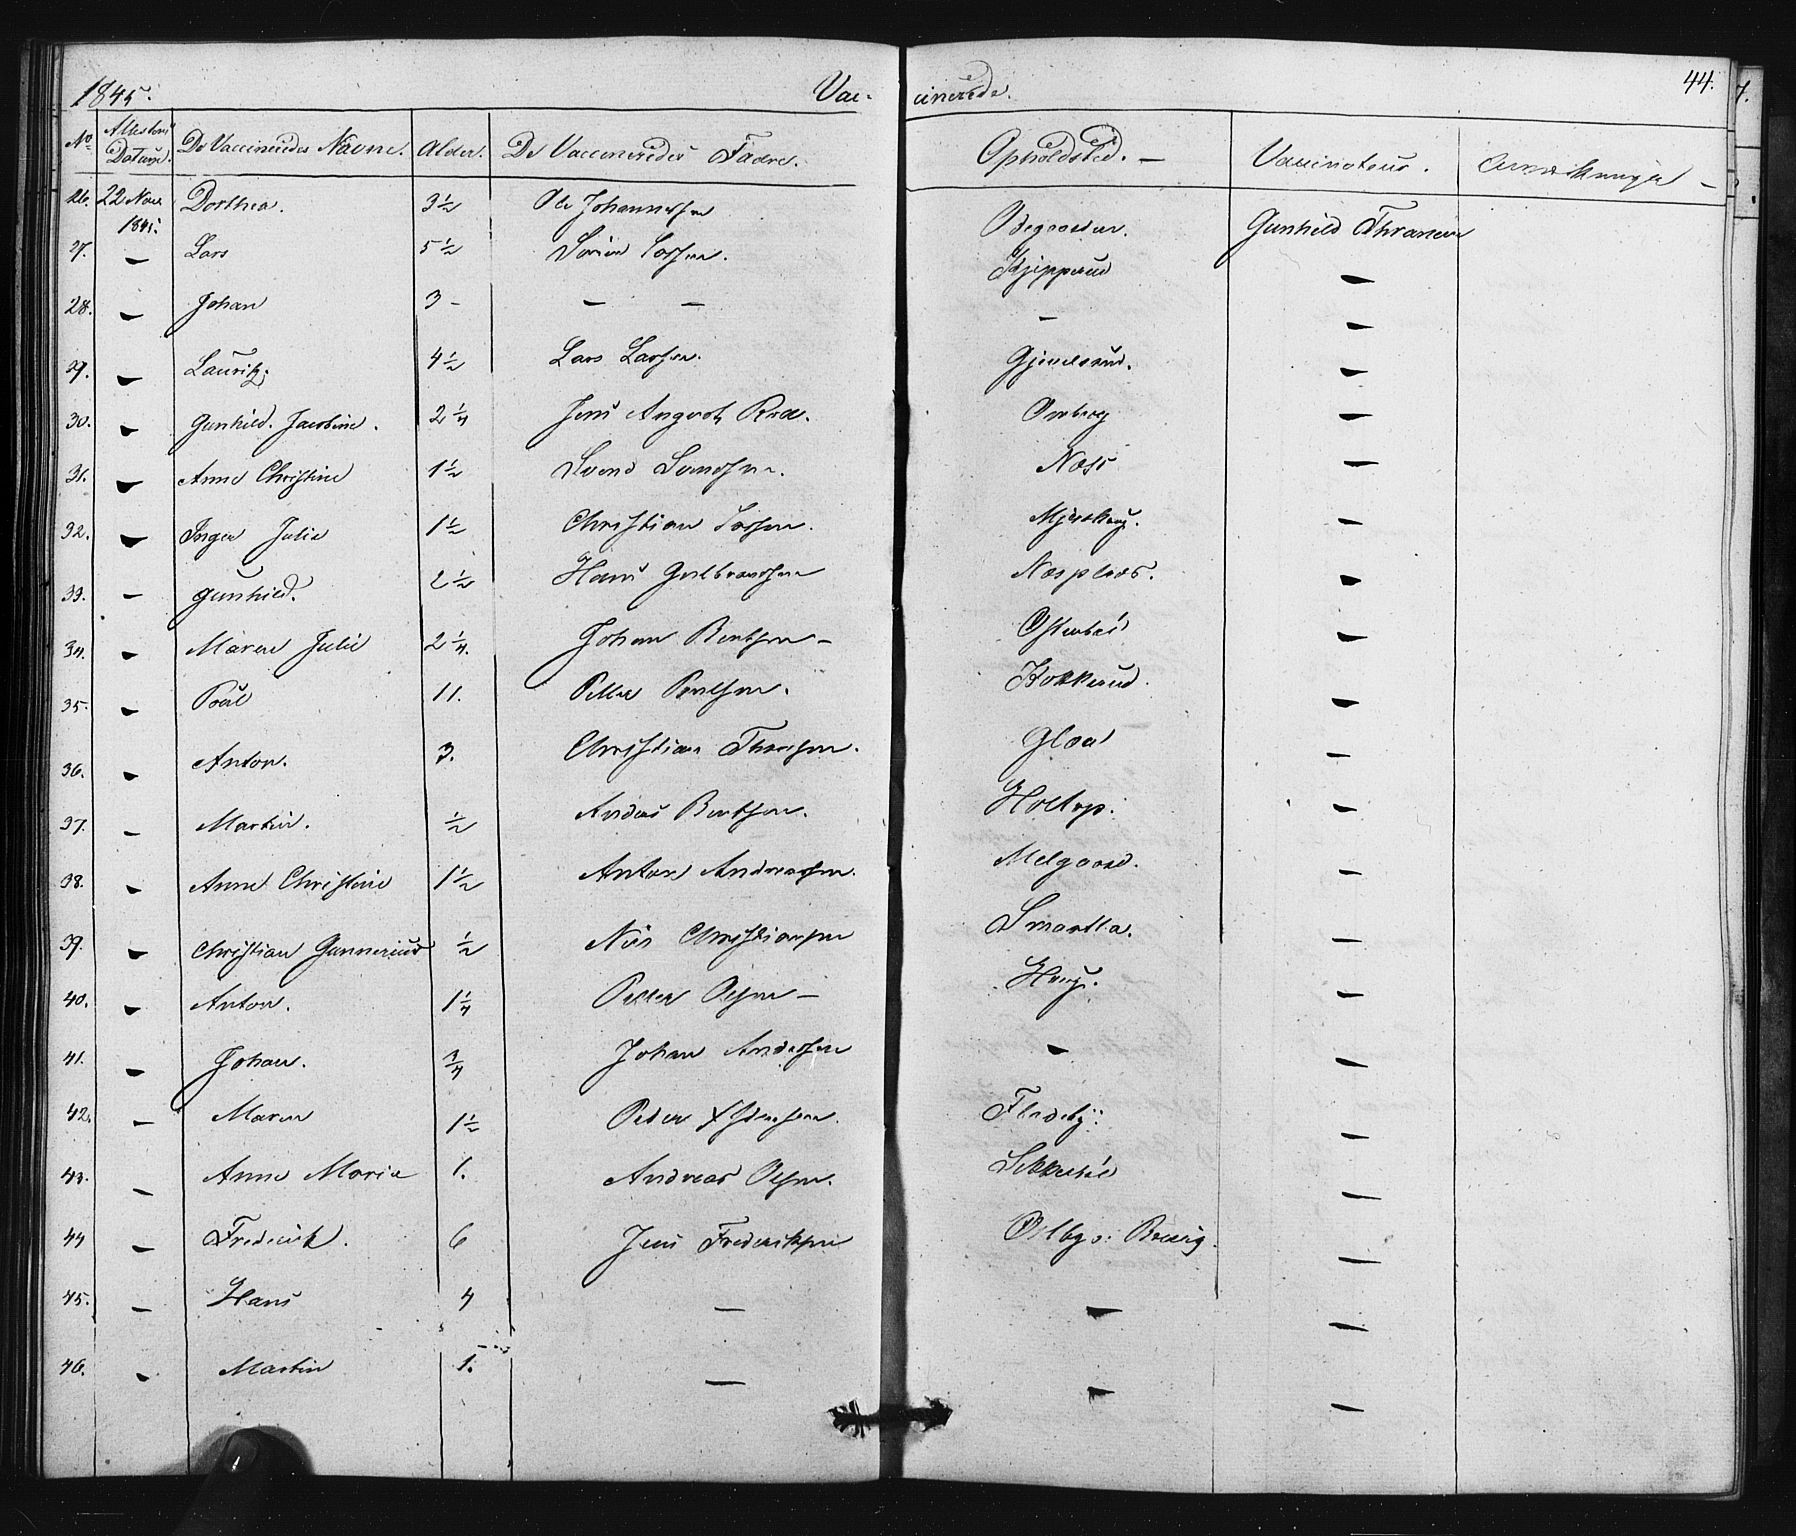 1845. Vac- cinerede. 44.
No Attestens Datum. De Vaccineredes Navne. Alder. De Vaccineredes Fædre. Opholdsted. — Vaccinateur. Anmærkninger —
26. 22 Novr 1845. Dorthea. 3 1/2 Ole Johannessen Gunhild Thranem
27. — Lars 5 1/2 Sørin Larsen. Kjipperud —
28. — Johan 3 - — — — —
29. — Lauritz 4 1/2 Lars Larsen. —
30. — Gunhild. Jacobine. 2 1/4 Jens August —
31. — Anne Christine 1 1/2 Svend Svendsen. Næss —
32. — Inger Julie 1 1/2 Christian Larsen. —
33. — Gunhild. 2 1/2 Hans Gulbrandsen Næsplads. —
34. — Maren Julie 2 1/4. Johan Bentsen — —
35. — Poul 11. Petter Poulsen. Kokkerud. —
36. — Anton. 3. Christian Thoresen. —
37. — Martin. 1/2 Andreas Bentsen. Holtop. —
38. — Anne Christine 1 1/2 Anton Andreassen. Melgaard. —
39. — Christian Gunnerius 1/2 Nils Christiansen Smartla. —
40. — Anton. 1 1/4 Petter Olsen — Haug. —
41. — Johan. 3/4 Johan Andersen — —
42. — Maren 1 1/2 Peder Fladeby. —
43. — Anne Maria 1. Andreas Olsen. —
44 — Frederik. 6 Jens Frederiksen —
45. — Hans 4 — — —
46. — Martin 1. — — —